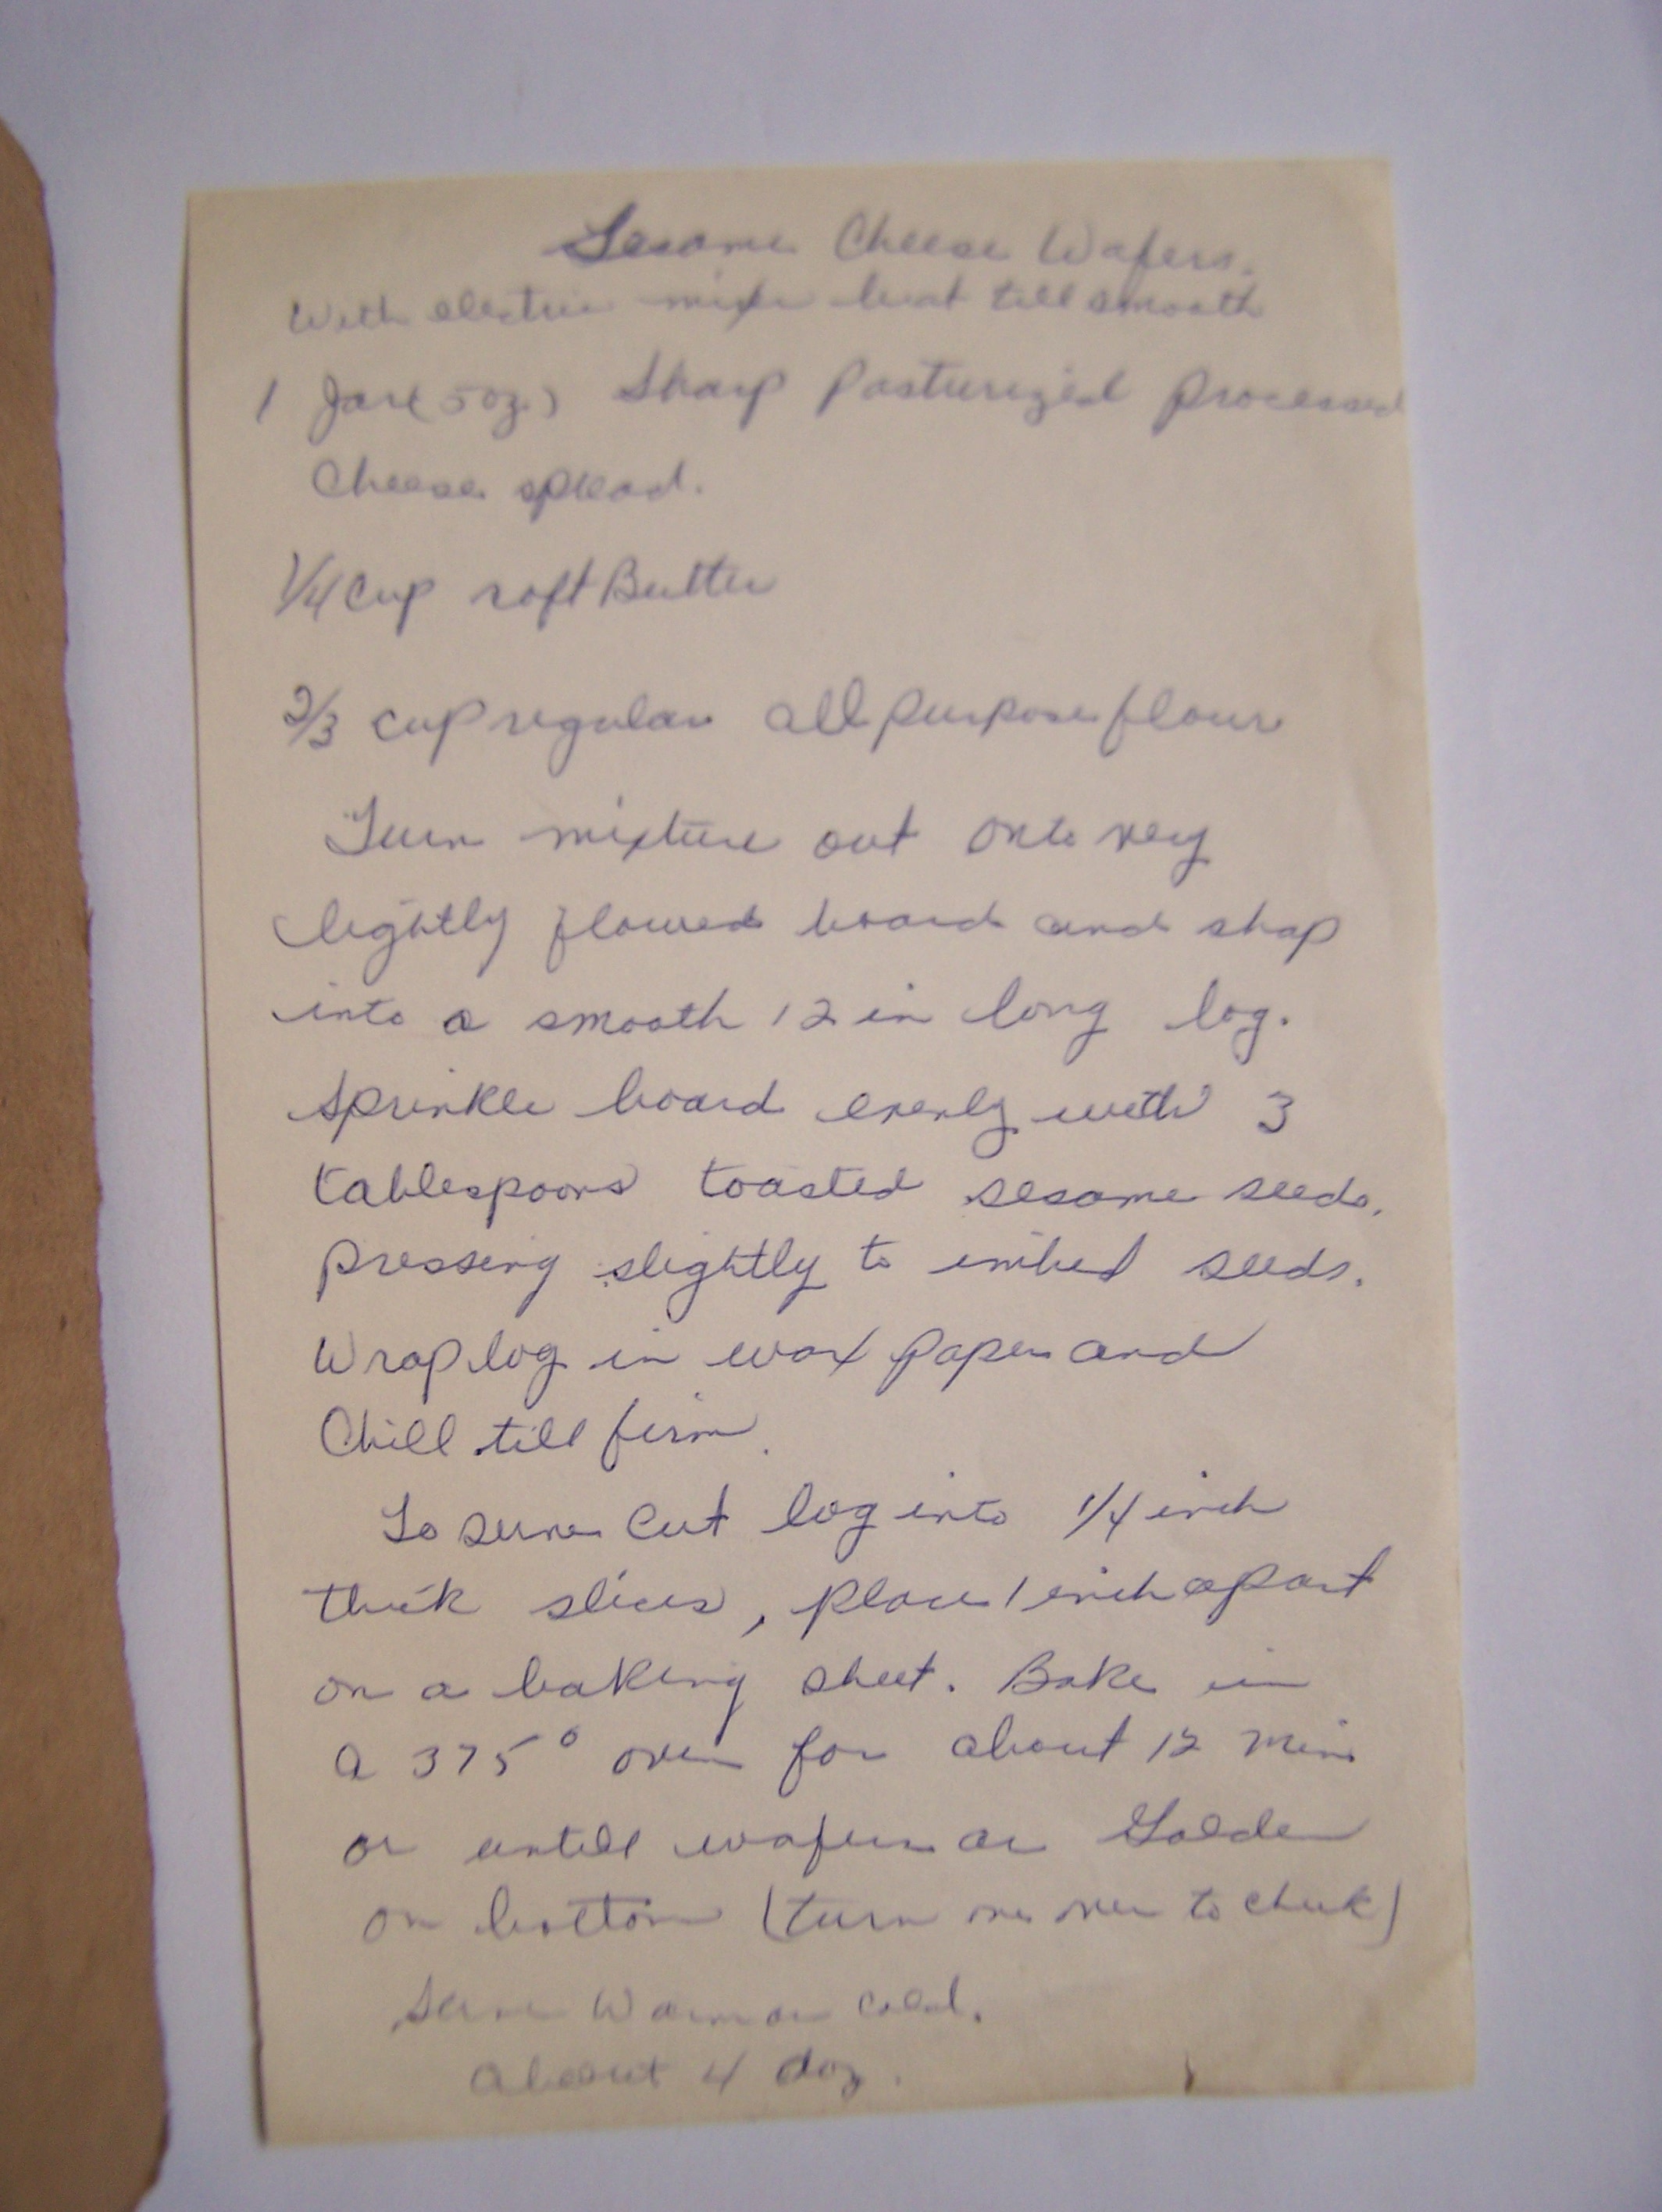 Sesame Cheese Wafers.
With electric mixer beat till smooth
1 Jar (5 oz.) Sharp Pasturized Processed
Cheese spread.
1/4 Cup soft Butter
2/3 cup regular all purpose flour
Turn mixture out onto very
lightly floured board and shap
into a smooth 12 in long log.
Sprinkle board evenly with 3
tablespoons toasted sesame seeds,
pressing slightly to embed seeds.
Wrap log in wax paper and
Chill till firm.
To serve cut log into 1/4 inch
thick slices, place 1 inch apart
on a baking sheet. Bake in
a 375° oven for about 12 min
or untill wafers are Golden
on bottom (turn one over to check)
Serve Warm or cold.
About 4 doz.